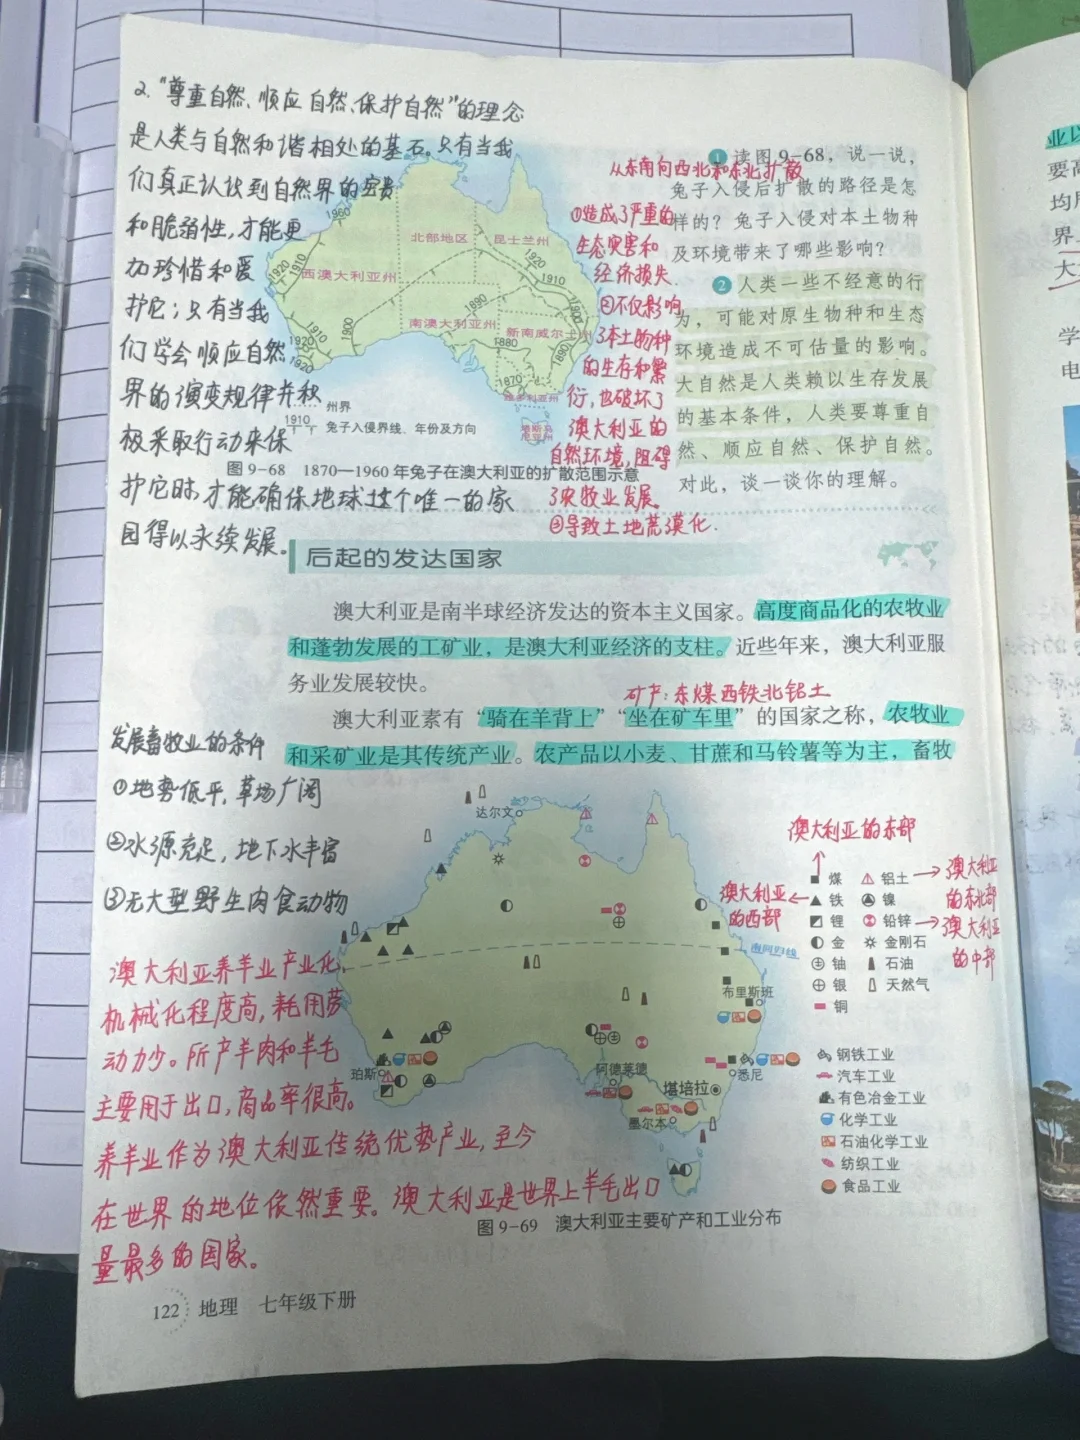 2."尊重自然、顺应自然、保护自然"的理念
是人类与自然和谐相处的基石。只有当我
们真正认识到自然界的宝贵
和脆弱性,才能更
加珍惜和爱
护它;只有当我
们学会顺应自然
界的演变规律并积
极采取行动来保
护它时,才能确保地球这个唯一的家
园得以永续发展。
1960
1920
1910
北部地区
昆士兰州
西澳大利亚州
1920
1910
1900
1890
南澳大利亚州
新南威尔士州
1880
1890
1870
维多利亚州
塔斯马
尼亚州
1910
1900
1920
1920
州界
1910 兔子入侵界线、年份及方向
图 9-68 1870—1960 年兔子在澳大利亚的扩散范围示意
1 读图 9-68,说一说,
兔子入侵后扩散的路径是怎
样的?兔子入侵对本土物种
及环境带来了哪些影响?
从东南向西北和东北扩散
①造成了严重的
生态灾害和
经济损失.
②不仅影响
了本土物种
的生存和繁
衍,也破坏了
澳大利亚的
自然环境,阻碍
了农牧业发展.
③导致土地荒漠化.
2 人类一些不经意的行
为,可能对原生物种和生态
环境造成不可估量的影响。
大自然是人类赖以生存发展
的基本条件,人类要尊重自
然、顺应自然、保护自然。
对此,谈一谈你的理解。
后起的发达国家
澳大利亚是南半球经济发达的资本主义国家。高度商品化的农牧业
和蓬勃发展的工矿业,是澳大利亚经济的支柱。近些年来,澳大利亚服
务业发展较快。
矿产:东煤西铁北铝土
澳大利亚素有"骑在羊背上""坐在矿车里"的国家之称,农牧业
和采矿业是其传统产业。农产品以小麦、甘蔗和马铃薯等为主,畜牧
发展畜牧业的条件
①地势低平,草场广阔
②水源充足,地下水丰富
③无大型野生肉食动物
澳大利亚养羊业产业化、
机械化程度高,耗用劳
动力少。所产羊肉和羊毛
主要用于出口,商品率很高。
养羊业作为澳大利亚传统优势产业,至今
在世界的地位依然重要。澳大利亚是世界上羊毛出口
量最多的国家。
达尔文
南回归线
布里斯班
珀斯
阿德莱德
堪培拉
悉尼
墨尔本
澳大利亚的东部
澳大利亚
的西部
澳大利亚
的东北部
澳大利亚
的中部
煤 铝土
铁 镍
锂 铅锌
金 金刚石
铀 石油
银 天然气
铜
钢铁工业
汽车工业
有色冶金工业
化学工业
石油化学工业
纺织工业
食品工业
图 9-69 澳大利亚主要矿产和工业分布
122 地理 七年级下册
业以
要高
均
界
大
学
电